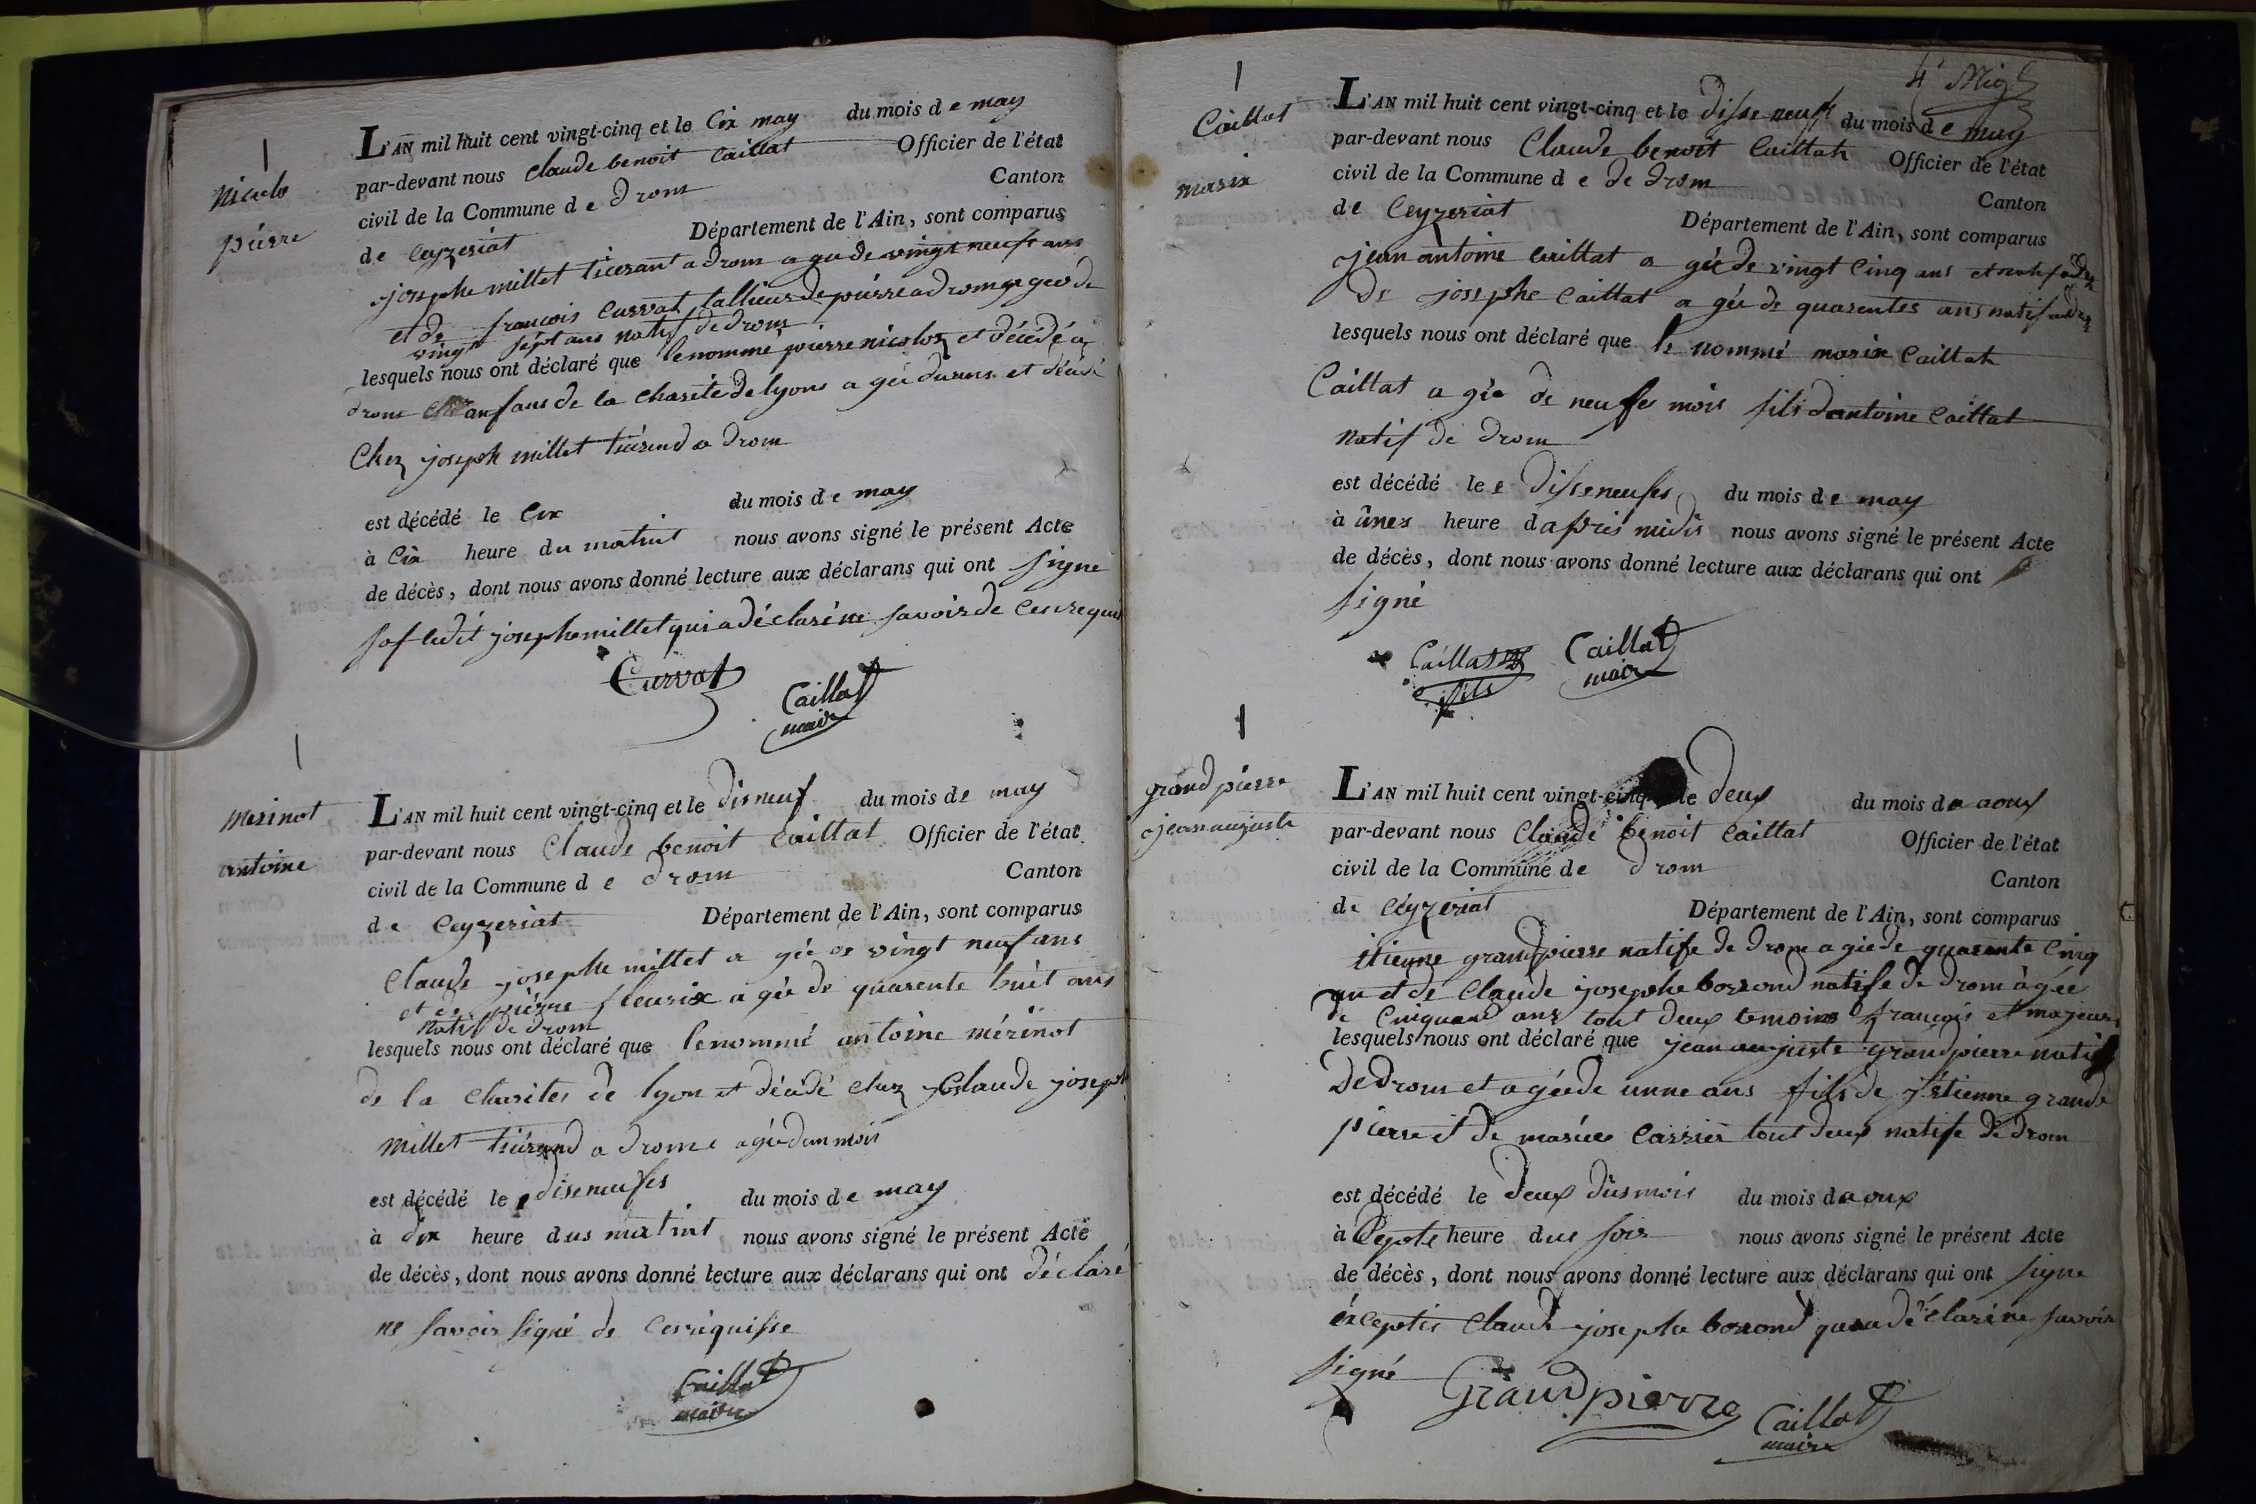 nicolo
pierre
L'AN mil huit cent vingt-cinq et le Cix may du mois de may
par-devant nous Claude benoit Caillat Officier de l'état
civil de la Commune de Drom Canton
de Ceyzeriat Département de l'Ain, sont comparus
josephe millet ticerant a drom a gee de vingt neuf ans
et de francois Curvat tallieur de pierre a drom a gee de
vingt sept ans natif de drom
lesquels nous ont déclaré que le nommé pierre nicolo et décédé a
drom anfans de la Charité de lyons a gée et décédé
Chez joseph millet a drom
est décédé le Cix du mois de may
à Cix heure du matint nous avons signé le présent Acte
de décès, dont nous avons donné lecture aux déclarans qui ont signe
sof ledit josephe millet qui a déclaré ne savoir de
Curvat
Caillat
maire
merinot
antoine
L'AN mil huit cent vingt-cinq et le disneuf du mois de may
par-devant nous Claude benoit Caillat Officier de l'état
civil de la Commune de drom Canton
de Ceyzeriat Département de l'Ain, sont comparus
Claude josephe millet a gée de vingt neuf ans
et de pierre fleurix a gée de quarente huit ans
natif de drom
lesquels nous ont déclaré que le nommé antoine mérinot
de la Charites de lyon et décédé chez Claude joseph
millet a drome agée dun mois
est décédé le diseneufes du mois de may
à dix heure dus matint nous avons signé le présent Acte
de décès, dont nous avons donné lecture aux déclarans qui ont déclaré
ne savoir signé de Cerriquisse
Caillat
maire
4e
Caillat
marix
L'AN mil huit cent vingt-cinq et le disse neuf du mois de may
par-devant nous Claude benoit Caillat Officier de l'état
civil de la Commune de de Drom Canton
de Ceyzeriat Département de l'Ain, sont comparus
jean antoine Caillat a gée de vingt Cinq ans et natif
de josephe Caillat a gée de quarentes ans natif
lesquels nous ont déclaré que le nommé marix Caillat
Caillat a gée de neufs mois fils dantoine Caillat
natif de drom
est décédé le e disseneufes du mois de may
à ûnes heure dapris midis nous avons signé le présent Acte
de décès, dont nous avons donné lecture aux déclarans qui ont
signé
Caillat
fils
Caillat
maire
grand pierre
jean aujuste
L'AN mil huit cent vingt-cinq le deux du mois de aoux
par-devant nous Claude benoit Caillat Officier de l'état
civil de la Commune de drom Canton
de Ceyzeriat Département de l'Ain, sont comparus
itienne grandpierre natife de drom a gée de quarente Cinq
an et de Claude josephe borrond natife de drom àgée
de Cinquand ans tout deux temoins francais et majeurs
lesquels nous ont déclaré que jean aujuste grandpierre natif
De drom et a gée de unne ans fils de itienne grande
pierre et de mariée Carrier tout deux natife de drom
est décédé le deux dus mois du mois de aoux
à Cepte heure dus soir nous avons signé le présent Acte
de décès, dont nous avons donné lecture aux déclarans qui ont signe
éxceptés Claude josephe borrond qui a déclaré ne savoir
signé
Grandpierre
Caillat
maire